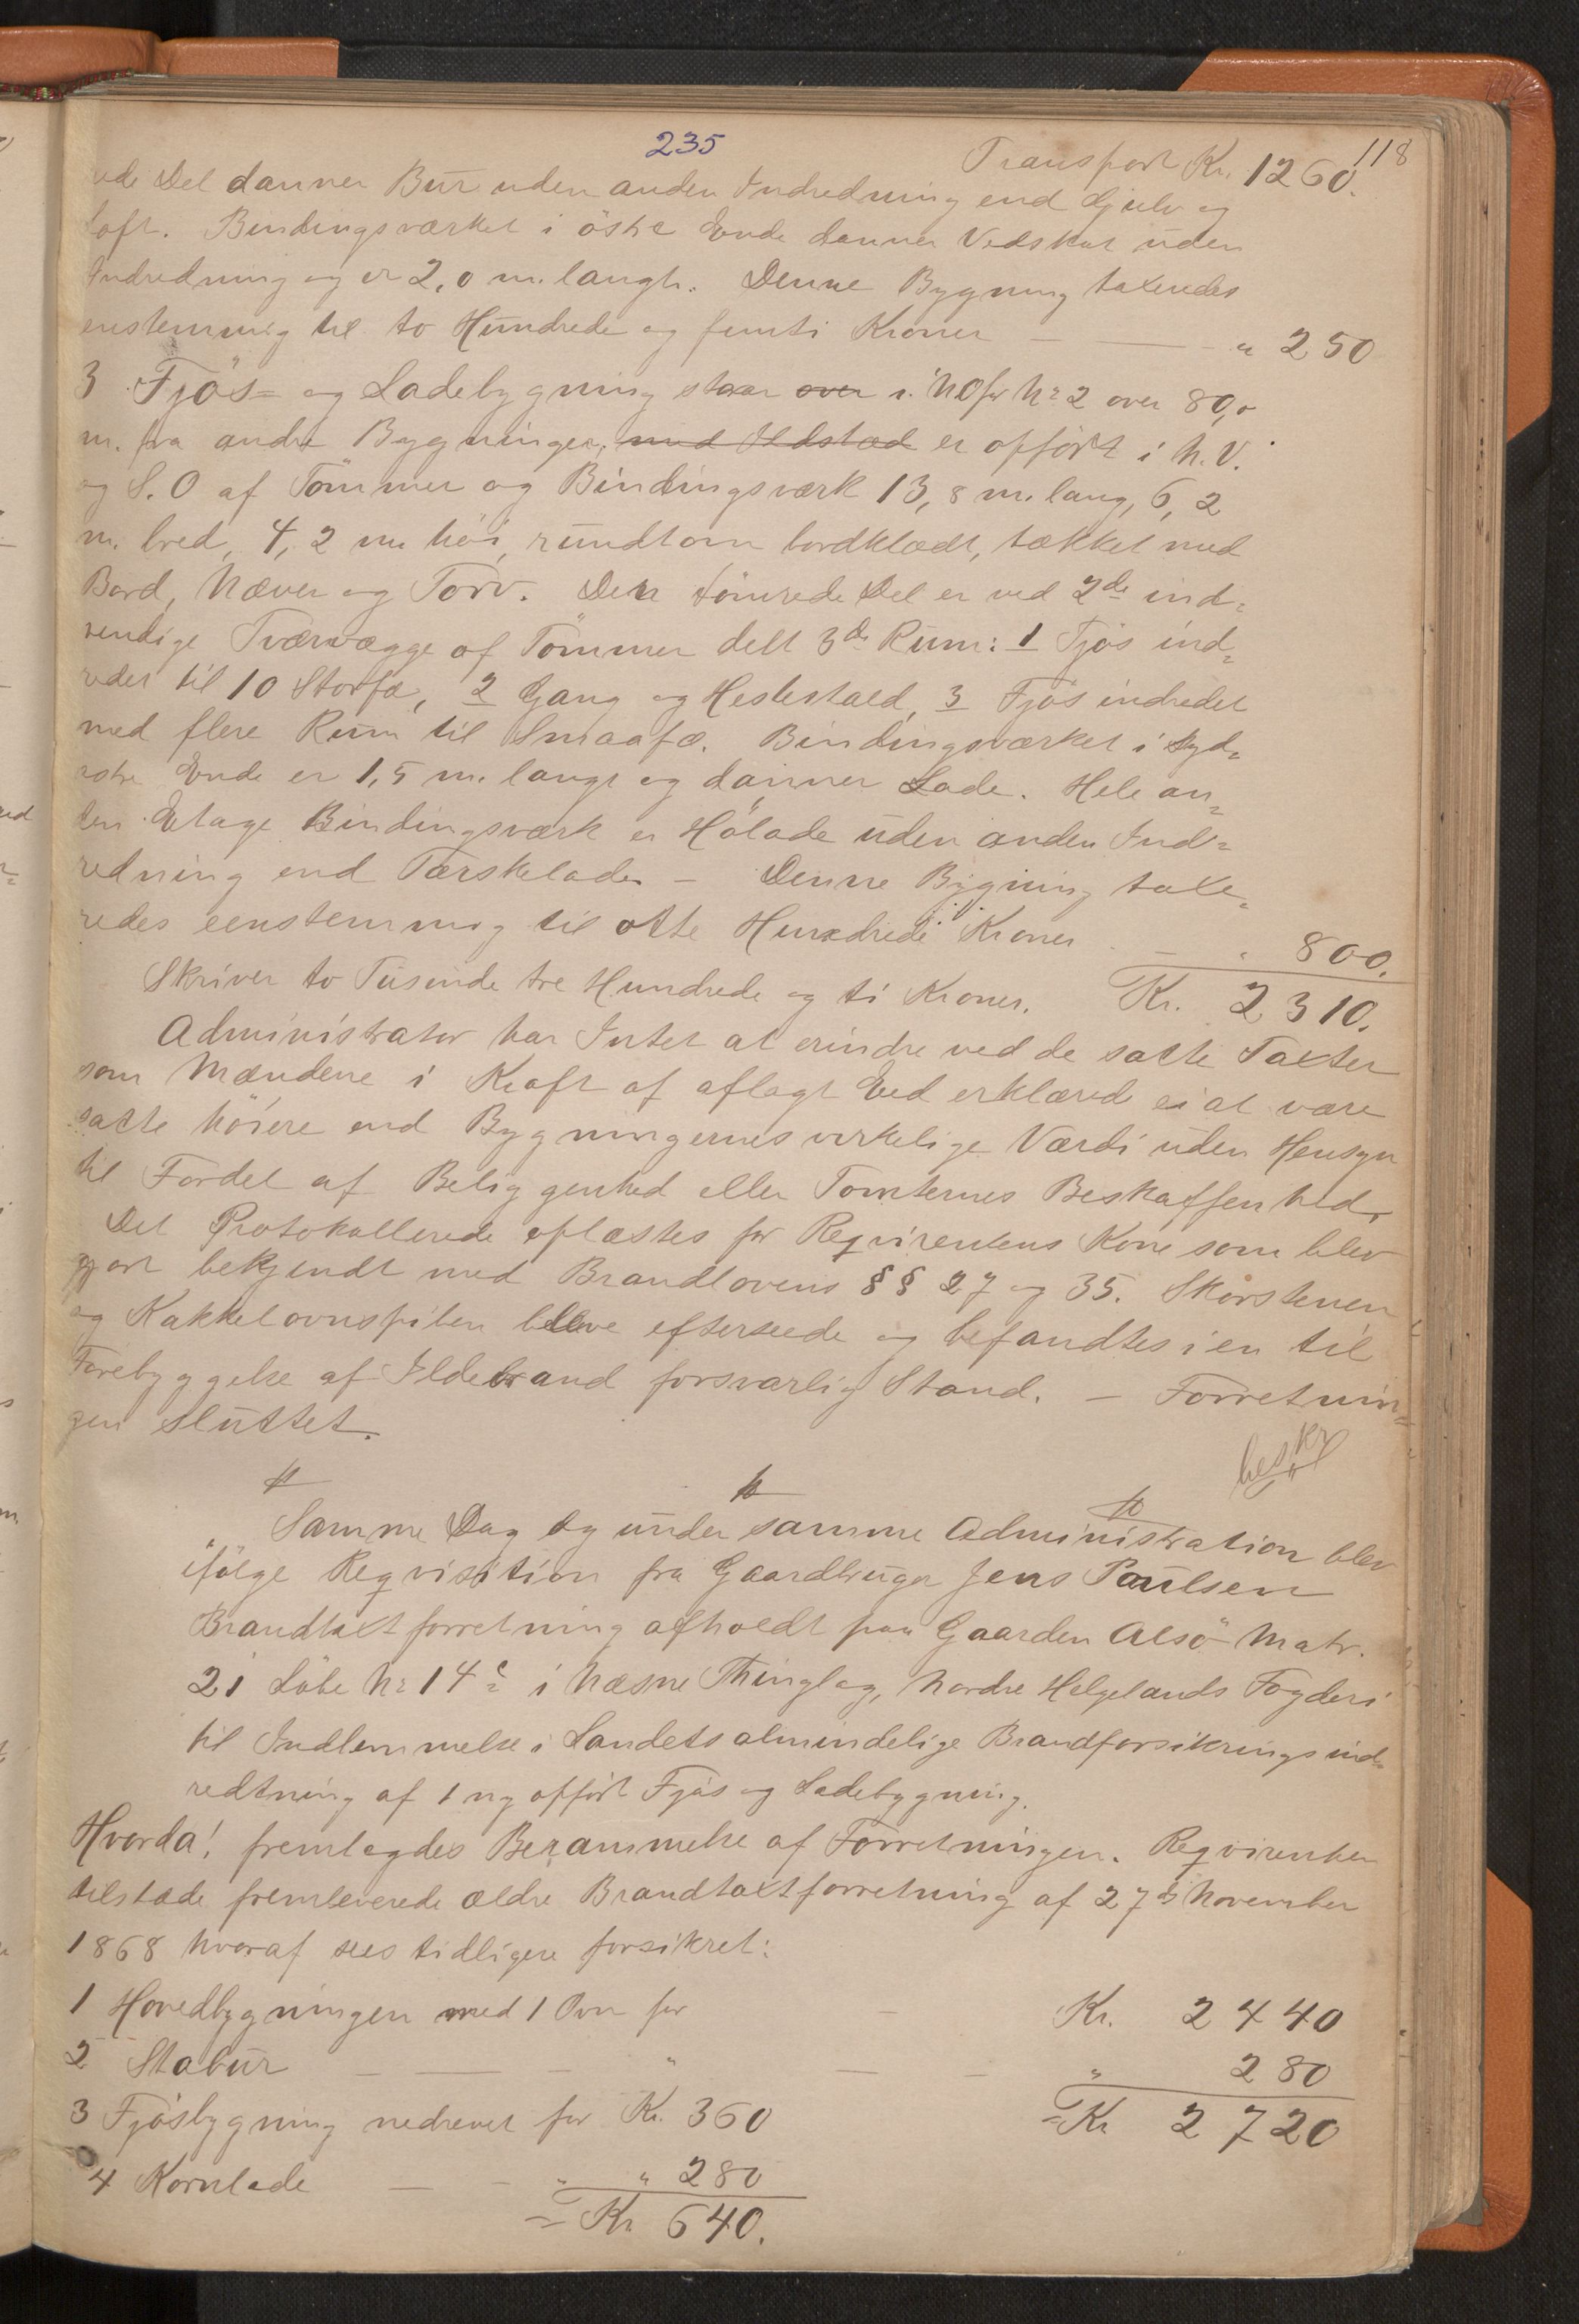 235
118
Transport Kr. 1260.
Del danner Bur uden anden Indredning end Gjulv og
loft. Bindingsværket i östre Ende danner Vedskur uden
Indredning og er 2,0 m. langt. Denne Bygning taxeredes
enstemmig til to Hundrede og femti Kroner — — " 250
3 Fjös= og Ladebygning staar over i N.O for No 2 over 80,0
m. fra andre Bygninger, med Ildsted er opfört i N.V.
og S.O af Tömmer og Bindingsværk 13,8 m. lang, 6,2
m. bred, 4,2 m. höi, rundtom bordklædt, tækket med
Bord, Næver og Torv. Den tömrede Del er ved 2de ind=
vendige Tværvægge af Tömmer delt 3de Rum: 1 Fjös ind=
redet til 10 Storfæ, 2 Gang og Hestestald, 3 Fjös indredet
med flere Rum til Smaafæ. Bindingsværket i syd=
östre Ende er 1,5 m. langt og danner Lade. Hele an=
den Etage Bindingsværk er Hölade uden anden Ind=
redning end Tærskelade. — Denne Bygning taxe=
redes eenstemmig til otte Hundrede Kroner — " 800.
Skriver to Tusinde tre Hundrede og ti Kroner. Kr. 2310.
Administrator har Intet at erindre ved de satte Taxter
som Mændene i Kraft af aflagt Eed erklærede ei at være
satte höiere end Bygningernes virkelige Værdi uden Hensyn
til Fordel af Beliggenhed eller Tomternes Beskaffenhed.
Det Protokollerede oplæstes for Reqvirentens Kone som blev
gjort bekjendt med Brandlovens §§ 27 og 35. Skorstenen
og Kakkelovnspiben bleve efterseede og befandtes i en til
Forebyggelse af Ildebrand forsvarlig Stand. — Forretnin=
gen sluttet.
beskr
Samme Dag og under samme Administration blev
ifölge Reqvisition fra Gaardbruger Jens Paulsen
Brandtaxtforretning afholdt paa Gaarden Alsö Matr.
21 Löbe No 14c i Næsne Thinglag, Nordre Helgelands Fogderi
til Indlemmelse i Landets almindelige Brandforsikringsind=
redtning af 1 ny opfört Fjös og Ladebygning.
Hvorda! fremlagdes Berammelse af Forretningen. Reqvirenten
tilstede fremleverede ældre Brandtaxtforretning af 27de November
1868 hvoraf sees tidligere forsikret:
1 Hovedbygningen med 1 Ovn for — Kr. 2440
2 Stabur — — — " — — " 280
3 Fjösbygning nedrevet for Kr. 360 = Kr 2720
4 Kornlade — — " " 280
= Kr 640.